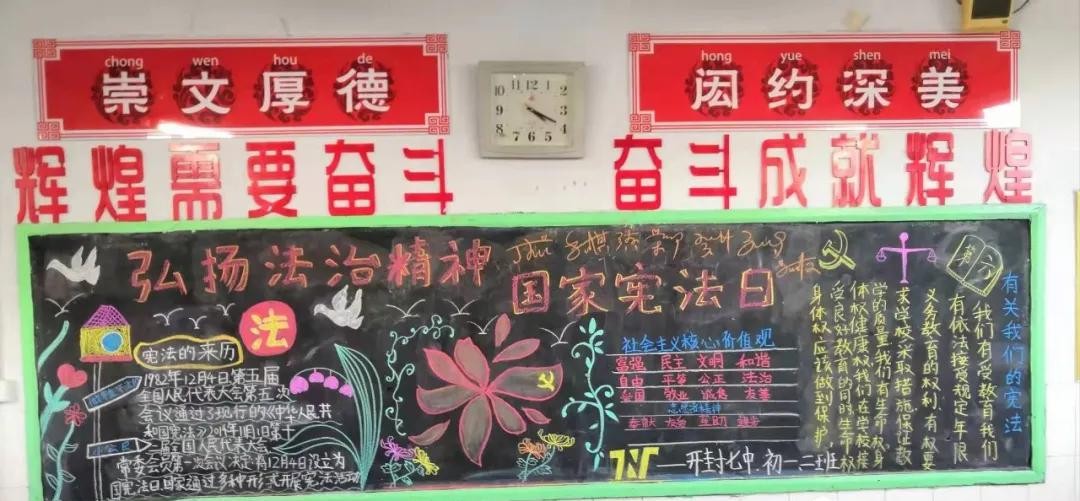 chong wen hou de
崇文厚德
hong yue shen mei
闳约深美
12 1 2 3 4 5 6 7 8 9 10 11
辉煌需要奋斗
奋斗成就辉煌
弘扬法治精神
国家宪法日
法
宪法的来历
1982年12月4日第五届
全国人民代表大会第五次
会议通过了现行的《中华人民共
和国宪法》2014年11月1日第十
一届全国人民代表大会
常委会第一次会议决定将12月4日设立为
国家宪法日国家通过多种形式开展宪法活动
社会主义核心价值观
富强 民主 文明 和谐
自由 平等 公正 法治
爱国 敬业 诚信 友善
志愿者精神
奉献 友爱 互助 进步
TNT——开封七中.初一.二班
有关我们的宪法
第六
我们有受教育我们
有依法接受规定年限
义务教育的权利有权要
求学校采取措施保证教
学的质量我们有生命权身
体权健康权我们在学校接
受良好教育的同时生命权
身体权应该做到保护,